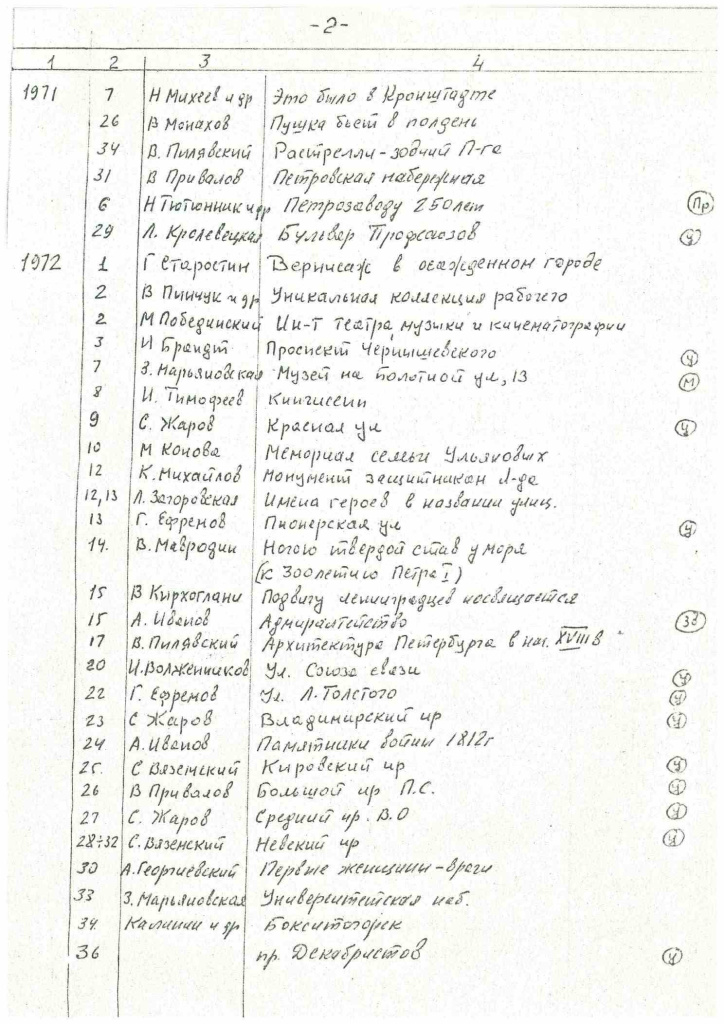 -2-
1 2 3 4
1971 7 Н Михеев и др Это было в Кронштадте
26 В Монахов Пушка бьет в полдень
34 В. Пилявский Растрелли-зодчий П-га
31 В Привалов Петровская набережная
6 Н Тютюнник и др Петрозаводу 250 лет Пр
29 Л. Кролевецкая Бульвар Профсоюзов У
1972 1 Г Старостин Вернисаж в осажденном городе
2 В Пинчук и др Уникальная коллекция рабочего
2 М Побединский Ин-т театра, музыки и кинематографии
3 И Брандт Проспект Чернышевского У
7 З. Марьяновская Музей на Болотной ул, 13 М
8 И. Тимофеев Кингисепп
9 С. Жаров Красная ул У
10 М Конова Мемориал семьи Ульяновых
12 К. Михайлов Монумент защитникам Л-да
12,13 Л. Загоровская Имена героев в названии улиц.
13 Г. Ефремов Пионерская ул У
14. В. Мавродин Ногою твердой став у моря
(к 300летию Петра I)
15 В Кирхоглани Подвигу ленинградцев посвящается
15 А. Иванов Адмиралтейство Зд
17 В. Пилявский Архитектура Петербурга в нач. XVIII в
20 И. Волженников Ул. Союза связи У
22 Г. Ефремов Ул. Л. Толстого У
23 С Жаров Владимирский пр У
24 А. Иванов Памятники войны 1812г
25. С Вяземский Кировский пр У
26 В Привалов Большой пр П.С. У
27 С. Жаров Средний пр. В.О У
28÷32 С. Вяземский Невский пр У
30 А. Георгиевский Первые женщины-врачи
33 З. Марьяновская Университетская наб.
34. Калинин и др Бокситогорск
36 пр. Декабристов У